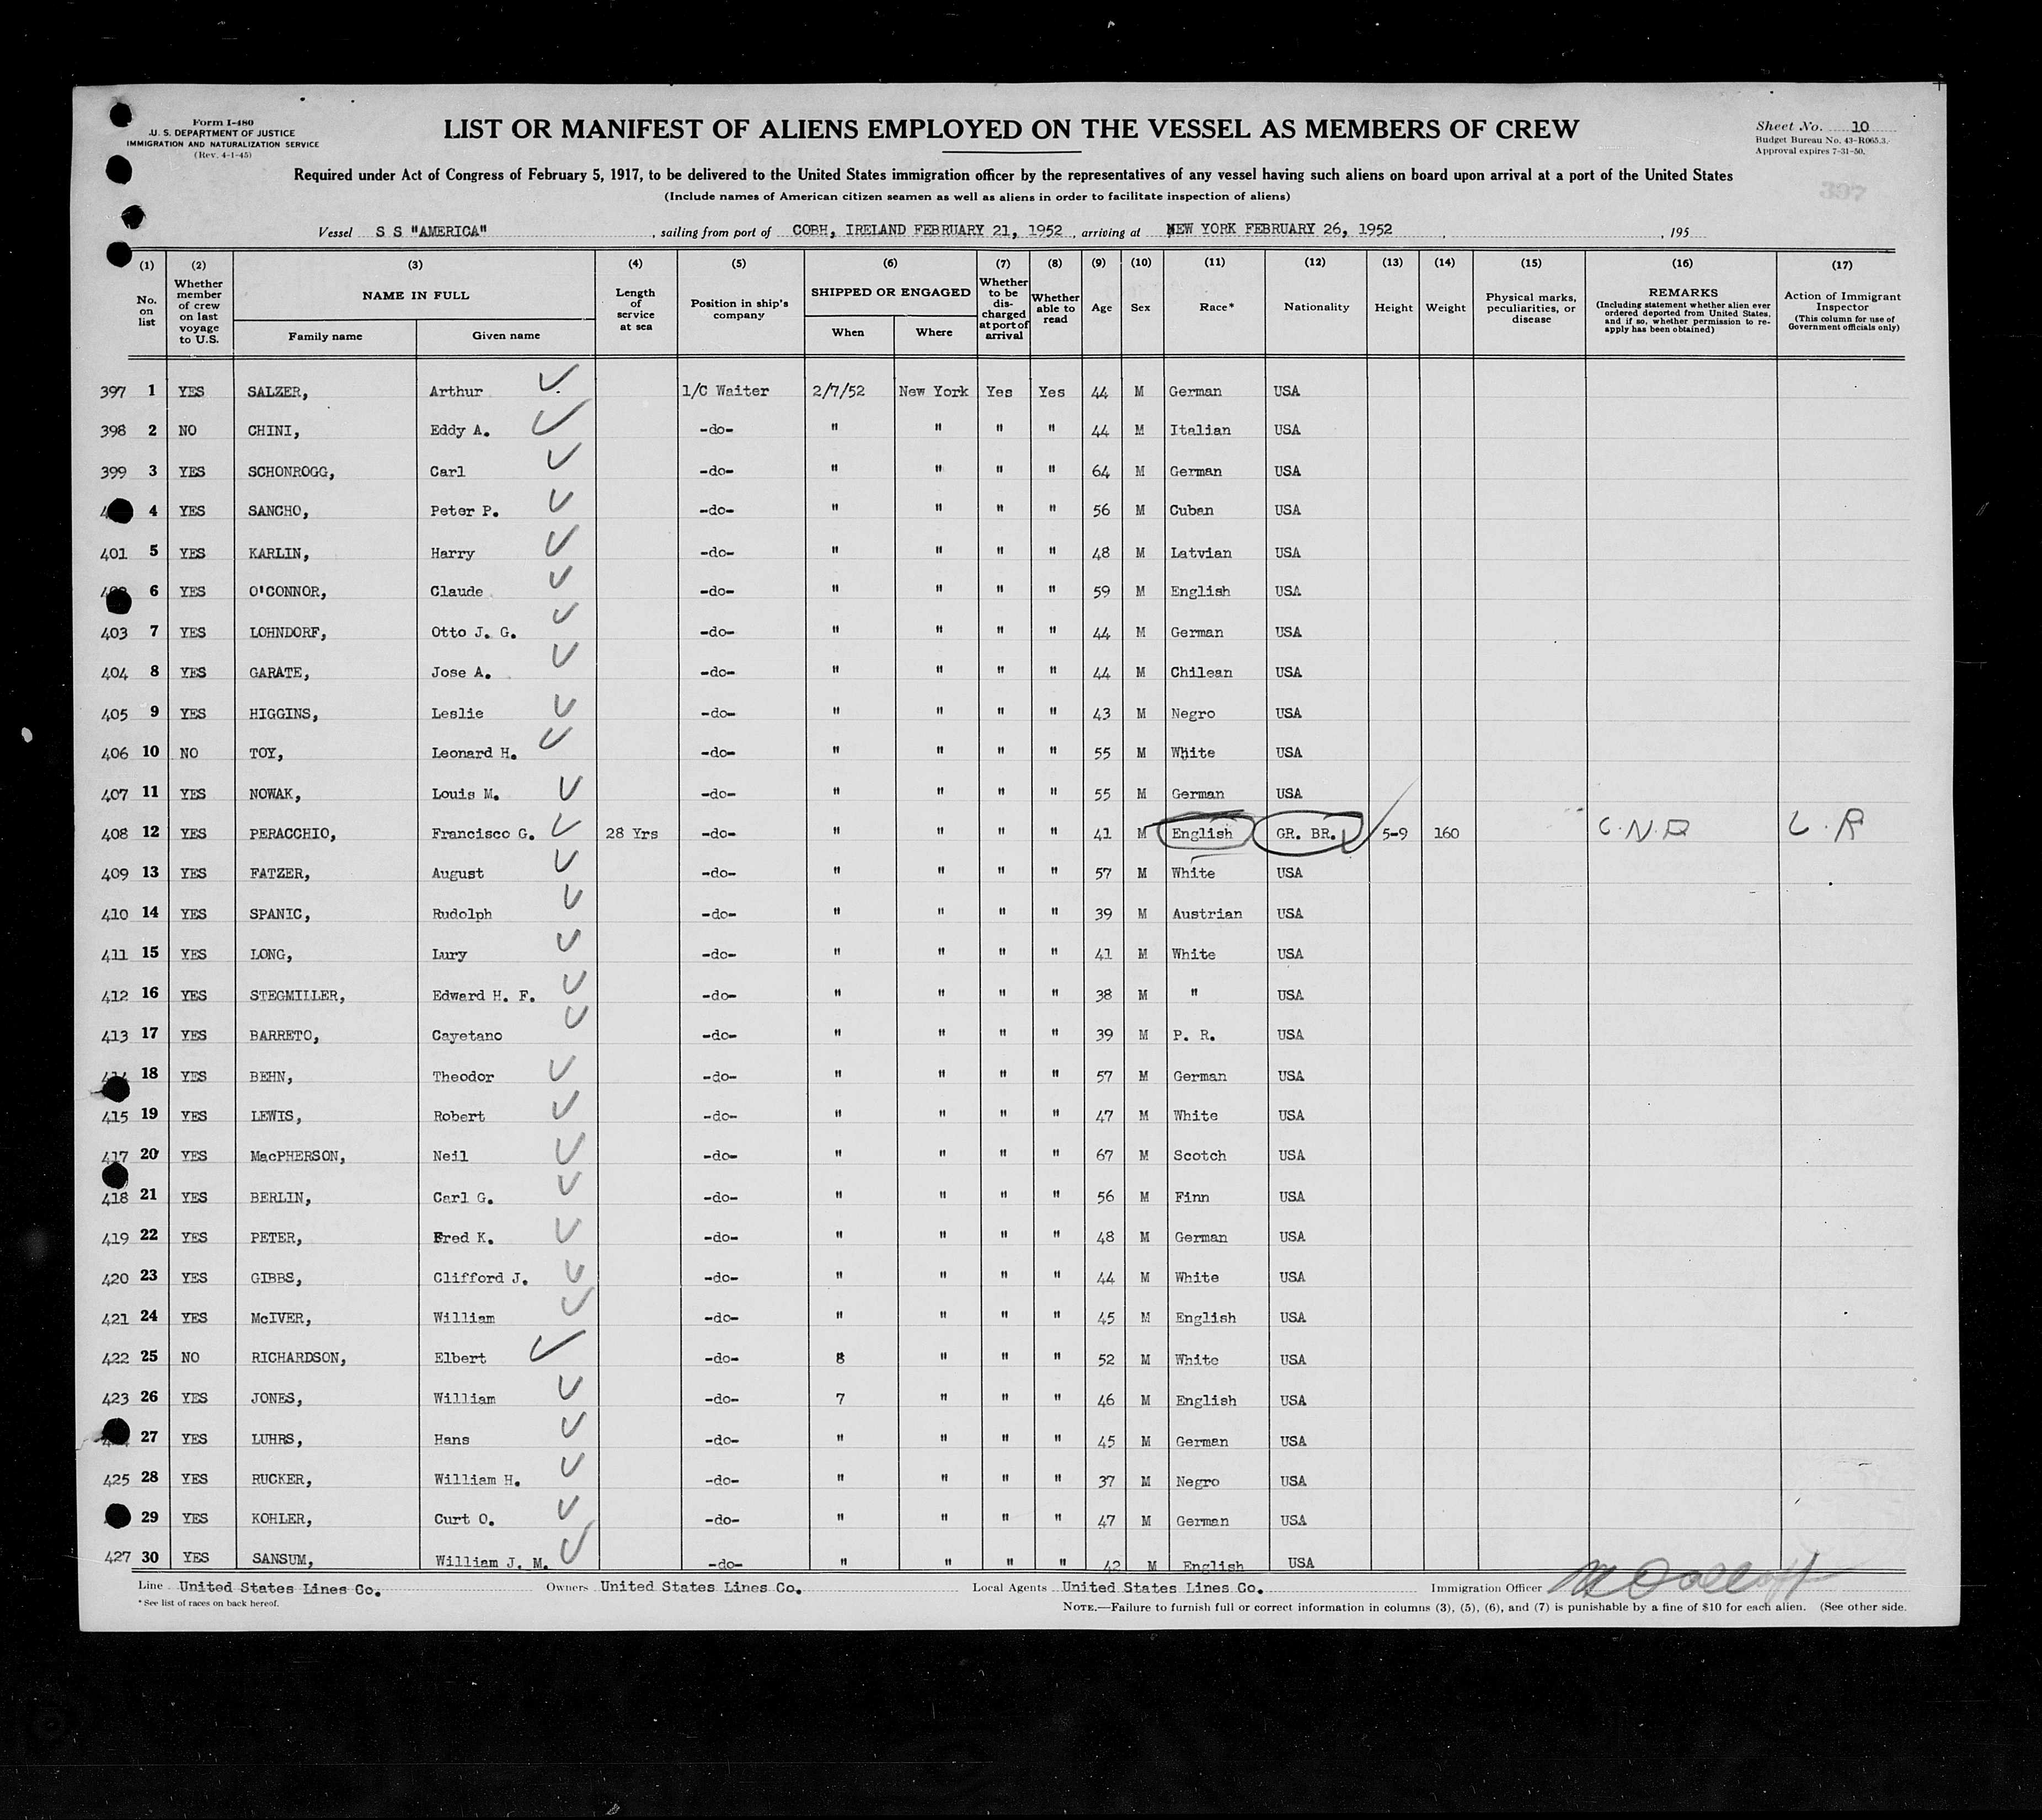 Form I-480
U. S. DEPARTMENT OF JUSTICE
IMMIGRATION AND NATURALIZATION SERVICE
(Rev. 4-1-45)
LIST OR MANIFEST OF ALIENS EMPLOYED ON THE VESSEL AS MEMBERS OF CREW
Sheet No. 10
Budget Bureau No. 43-R065.3.
Approval expires 7-31-50.
Required under Act of Congress of February 5, 1917, to be delivered to the United States immigration officer by the representatives of any vessel having such aliens on board upon arrival at a port of the United States
(Include names of American citizen seamen as well as aliens in order to facilitate inspection of aliens)
397
Vessel S S "AMERICA" , sailing from port of COBH, IRELAND FEBRUARY 21, 1952 , arriving at NEW YORK FEBRUARY 26, 1952 , 195
(1) (2) (3) (4) (5) (6) (7) (8) (9) (10) (11) (12) (13) (14) (15) (16) (17)
No. on list
Whether member of crew on last voyage to U.S.
NAME IN FULL
Family name Given name
Length of service at sea
Position in ship's company
SHIPPED OR ENGAGED
When Where
Whether to be discharged at port of arrival
Whether able to read
Age
Sex
Race*
Nationality
Height
Weight
Physical marks, peculiarities, or disease
REMARKS
(Including statement whether alien ever ordered deported from United States, and if so, whether permission to re-apply has been obtained)
Action of Immigrant Inspector
(This column for use of Government officials only)
397 1 YES SALZER, Arthur 1/C Waiter 2/7/52 New York Yes Yes 44 M German USA
398 2 NO CHINI, Eddy A. -do- " " " " 44 M Italian USA
399 3 YES SCHONROGG, Carl -do- " " " " 64 M German USA
4 YES SANCHO, Peter P. -do- " " " " 56 M Cuban USA
401 5 YES KARLIN, Harry -do- " " " " 48 M Latvian USA
6 YES O'CONNOR, Claude -do- " " " " 59 M English USA
403 7 YES LOHNDORF, Otto J. G. -do- " " " " 44 M German USA
404 8 YES GARATE, Jose A. -do- " " " " 44 M Chilean USA
405 9 YES HIGGINS, Leslie -do- " " " " 43 M Negro USA
406 10 NO TOY, Leonard H. -do- " " " " 55 M White USA
407 11 YES NOWAK, Louis M. -do- " " " " 55 M German USA
408 12 YES PERACCHIO, Francisco G. 28 Yrs -do- " " " " 41 M English GR. BR. 5-9 160 C.N.R L.R
409 13 YES FATZER, August -do- " " " " 57 M White USA
410 14 YES SPANIC, Rudolph -do- " " " " 39 M Austrian USA
411 15 YES LONG, Lury -do- " " " " 41 M White USA
412 16 YES STEGMILLER, Edward H. F. -do- " " " " 38 M " USA
413 17 YES BARRETO, Cayetano -do- " " " " 39 M P. R. USA
18 YES BEHN, Theodor -do- " " " " 57 M German USA
415 19 YES LEWIS, Robert -do- " " " " 47 M White USA
417 20 YES MacPHERSON, Neil -do- " " " " 67 M Scotch USA
418 21 YES BERLIN, Carl G. -do- " " " " 56 M Finn USA
419 22 YES PETER, Fred K. -do- " " " " 48 M German USA
420 23 YES GIBBS, Clifford J. -do- " " " " 44 M White USA
421 24 YES McIVER, William -do- " " " " 45 M English USA
422 25 NO RICHARDSON, Elbert -do- 8 " " " 52 M White USA
423 26 YES JONES, William -do- 7 " " " 46 M English USA
27 YES LUHRS, Hans -do- " " " " 45 M German USA
425 28 YES RUCKER, William H. -do- " " " " 37 M Negro USA
29 YES KOHLER, Curt O. -do- " " " " 47 M German USA
427 30 YES SANSUM, William J. M. -do- " " " " 42 M English USA
Line United States Lines Co. Owners United States Lines Co. Local Agents United States Lines Co. Immigration Officer
* See list of races on back hereof.
NOTE.—Failure to furnish full or correct information in columns (3), (5), (6), and (7) is punishable by a fine of $10 for each alien. (See other side.